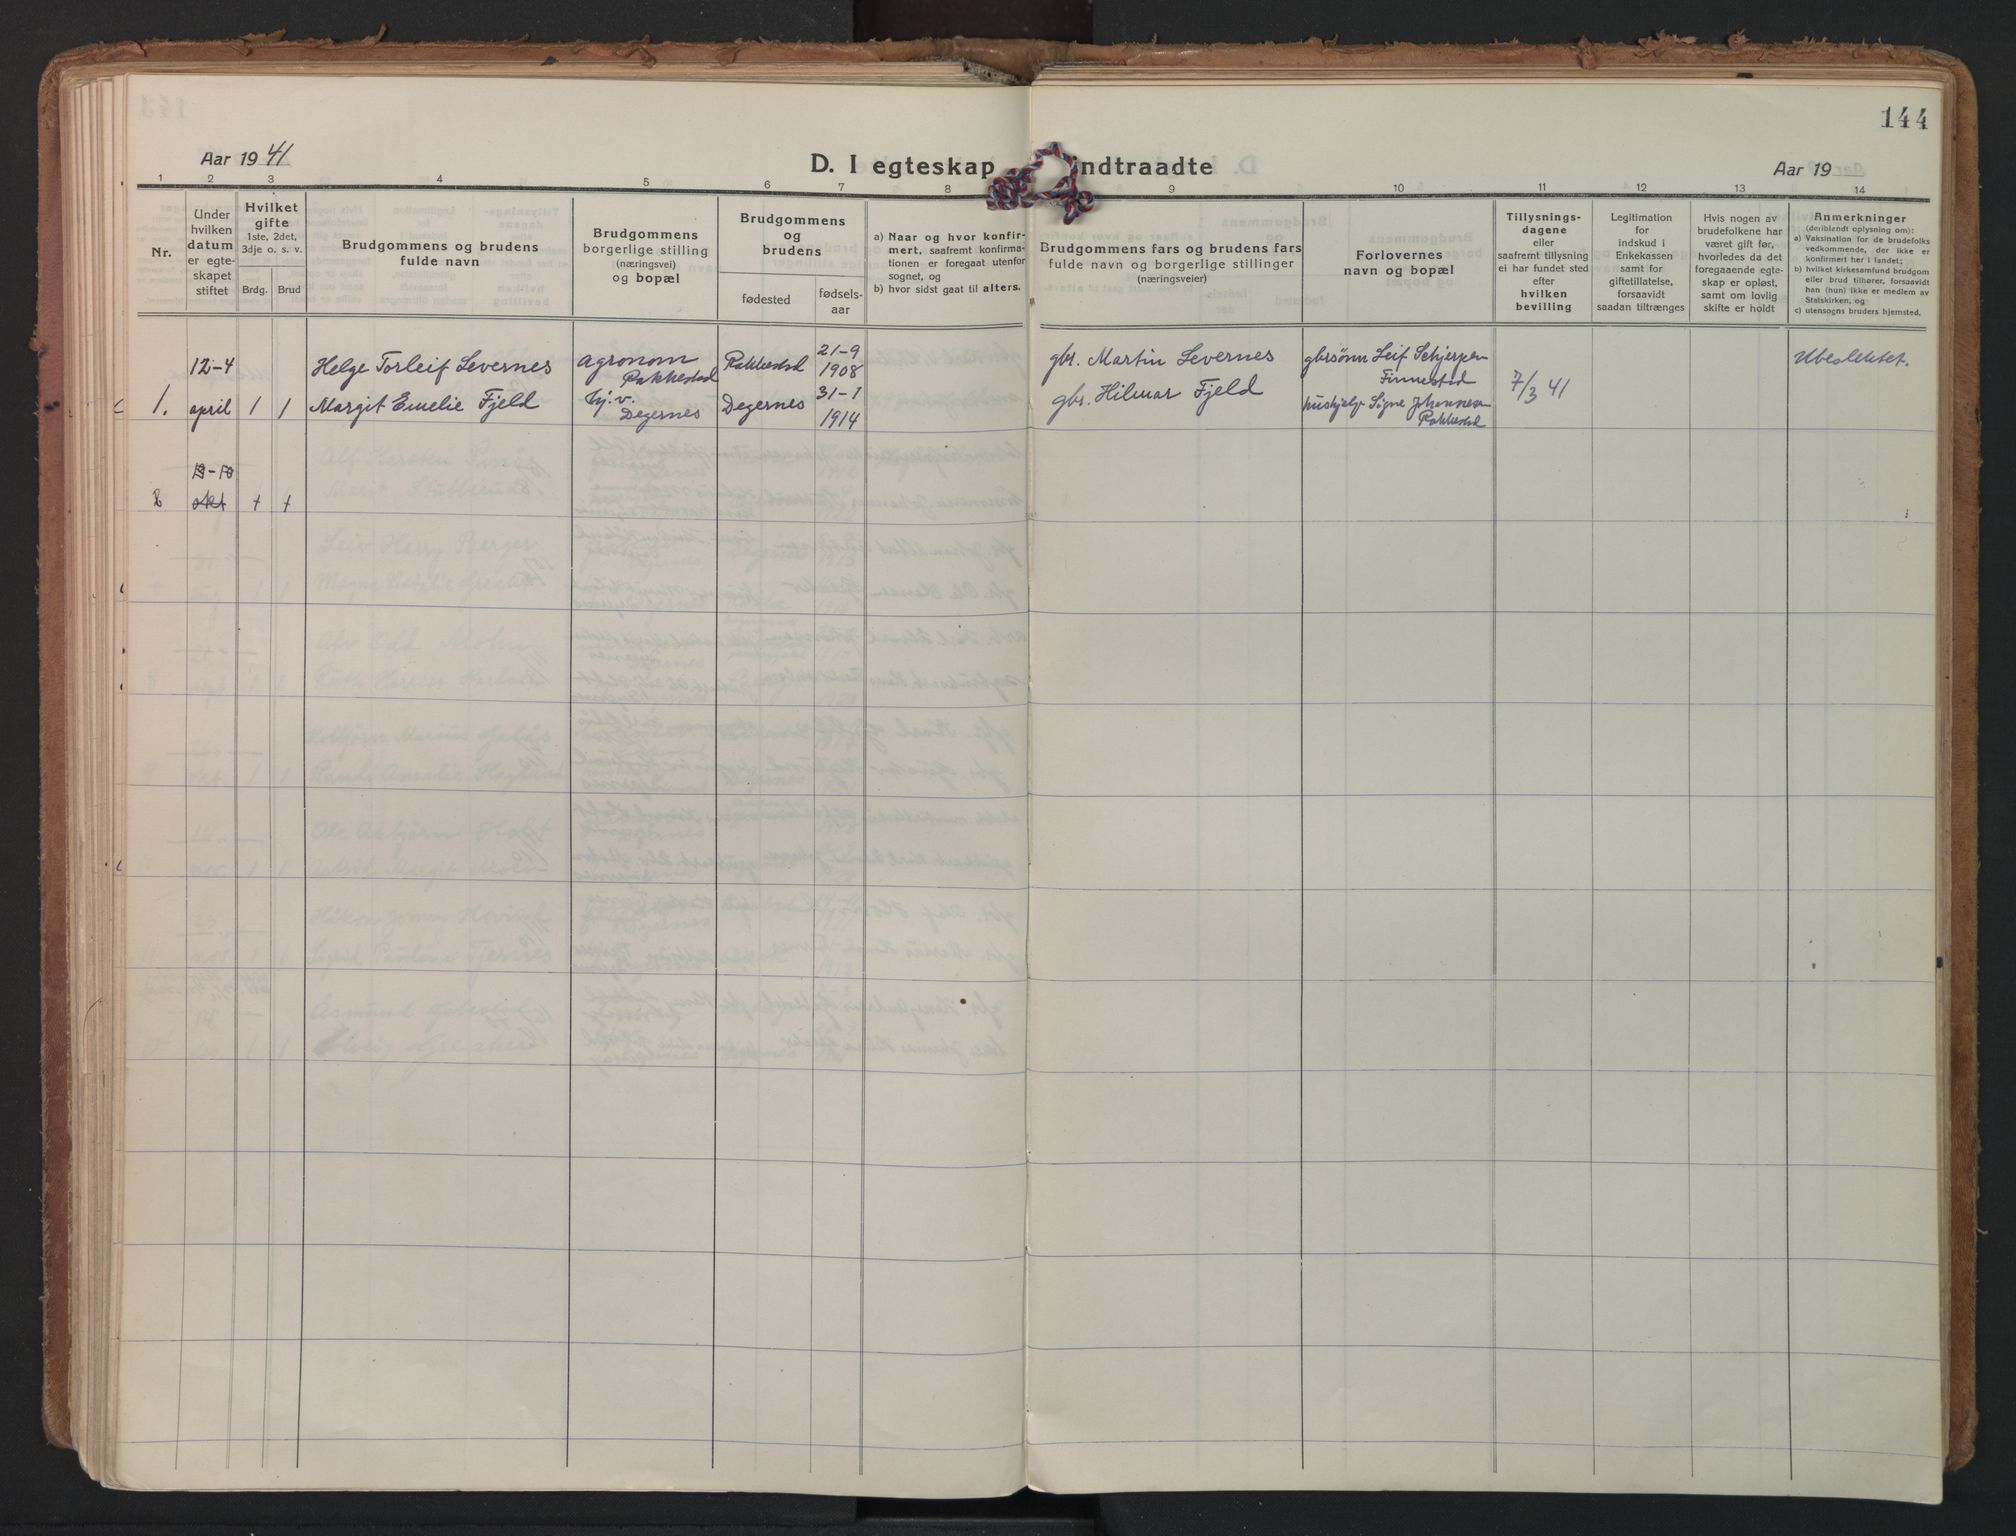 144
Aar 1941
D. I egteskap indtraadte
Aar 19
1 2 3 4 5 6 7 8 9 10 11 12 13 14
Nr.
Under
hvilken
datum
er egte-
skapet
stiftet
Hvilket
gifte
1ste, 2det,
3dje o. s. v.
Brdg. Brud
Brudgommens og brudens
fulde navn
Brudgommens
borgerlige stilling
(næringsvei)
og bopæl
Brudgommens
og
brudens
fødested
fødsels-
aar
a) Naar og hvor konfir-
mert, saafremt konfirma-
tionen er foregaat utenfor
sognet, og
b) hvor sidst gaat til alters.
Brudgommens fars og brudens fars
fulde navn og borgerlige stillinger
(næringsveier)
Forlovernes
navn og bopæl
Tillysnings-
dagene
eller
saafremt tillysning
ei har fundet sted
efter
hvilken
bevilling
Legitimation
for
indskud i
Enkekassen
samt for
giftetillatelse,
forsaavidt
saadan tiltrænges
Hvis nogen av
brudefolkene har
været gift før,
hvorledes da det
foregaaende egte-
skap er opløst,
samt om lovlig
skifte er holdt
Anmerkninger
(deriblandt oplysning om):
a) Vaksination for de brudefolks
vedkommende, der ikke er
konfirmert her i landet;
b) hvilket kirkesamfund brudgom
eller brud tilhører, forsaavidt
han (hun) ikke er medlem av
Statskirken, og
c) utensogns bruders hjemsted.
1.
12-4
april
1 1
Helge Torleif Levernes
Margit Emelie Fjeld
agronom
Rakkestad
hj.v.
Degernes
Rakkestad
Degernes
21-9
1908
31-1
1914
gbr. Martin Levernes
gbr. Hilmar Fjeld
gbrsønn Leif Schjerpen
Finnestad
hushjelp Signe Johannesen
Rakkestad
7/3 41
Ubeslektet.
2
-10
okt
1 1